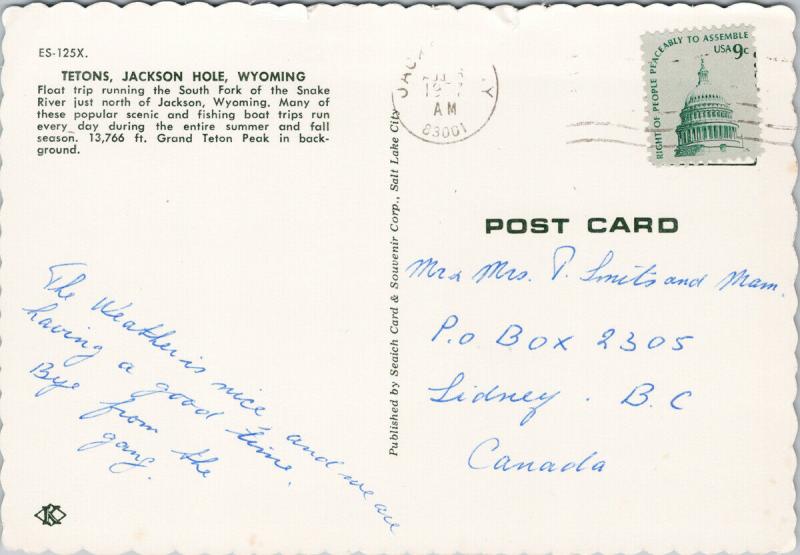 ES-125X.
TETONS, JACKSON HOLE, WYOMING
Float trip running the South Fork of the Snake
River just north of Jackson, Wyoming. Many of
these popular scenic and fishing boat trips run
every day during the entire summer and fall
season. 13,766 ft. Grand Teton Peak in back-
ground.
The Weather is nice, and we are
having a good time.
Bye from the
gang.
Published by Seaich Card & Souvenir Corp., Salt Lake City
AM
83001
RIGHT OF PEOPLE PEACEABLY TO ASSEMBLE
USA 9c
POST CARD
Mr & Mrs. P. Smits and Mam.
P.o Box 2305
Sidney. B.C
Canada
K